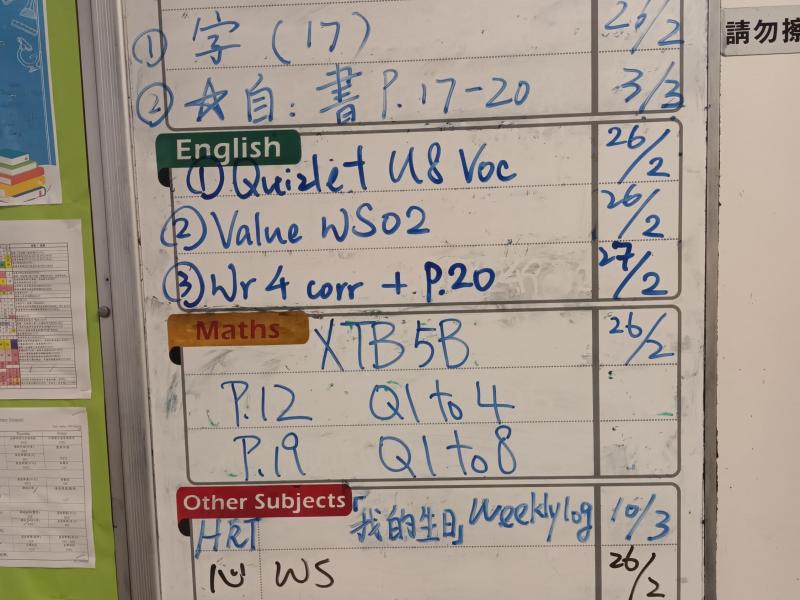 ① 字 (17) 26/2
② ☆自：書 P.17-20 3/3
English
① Quizlet U8 Voc 26/2
② Value WS02 26/2
③ Wr 4 corr + P.20 27/2
Maths
XTB5B 26/2
P.12 Q1 to 4
P.19 Q1 to 8
Other Subjects
HRT 「我的生日」 Weeklylog 10/3
心 WS 26/2
請勿擦